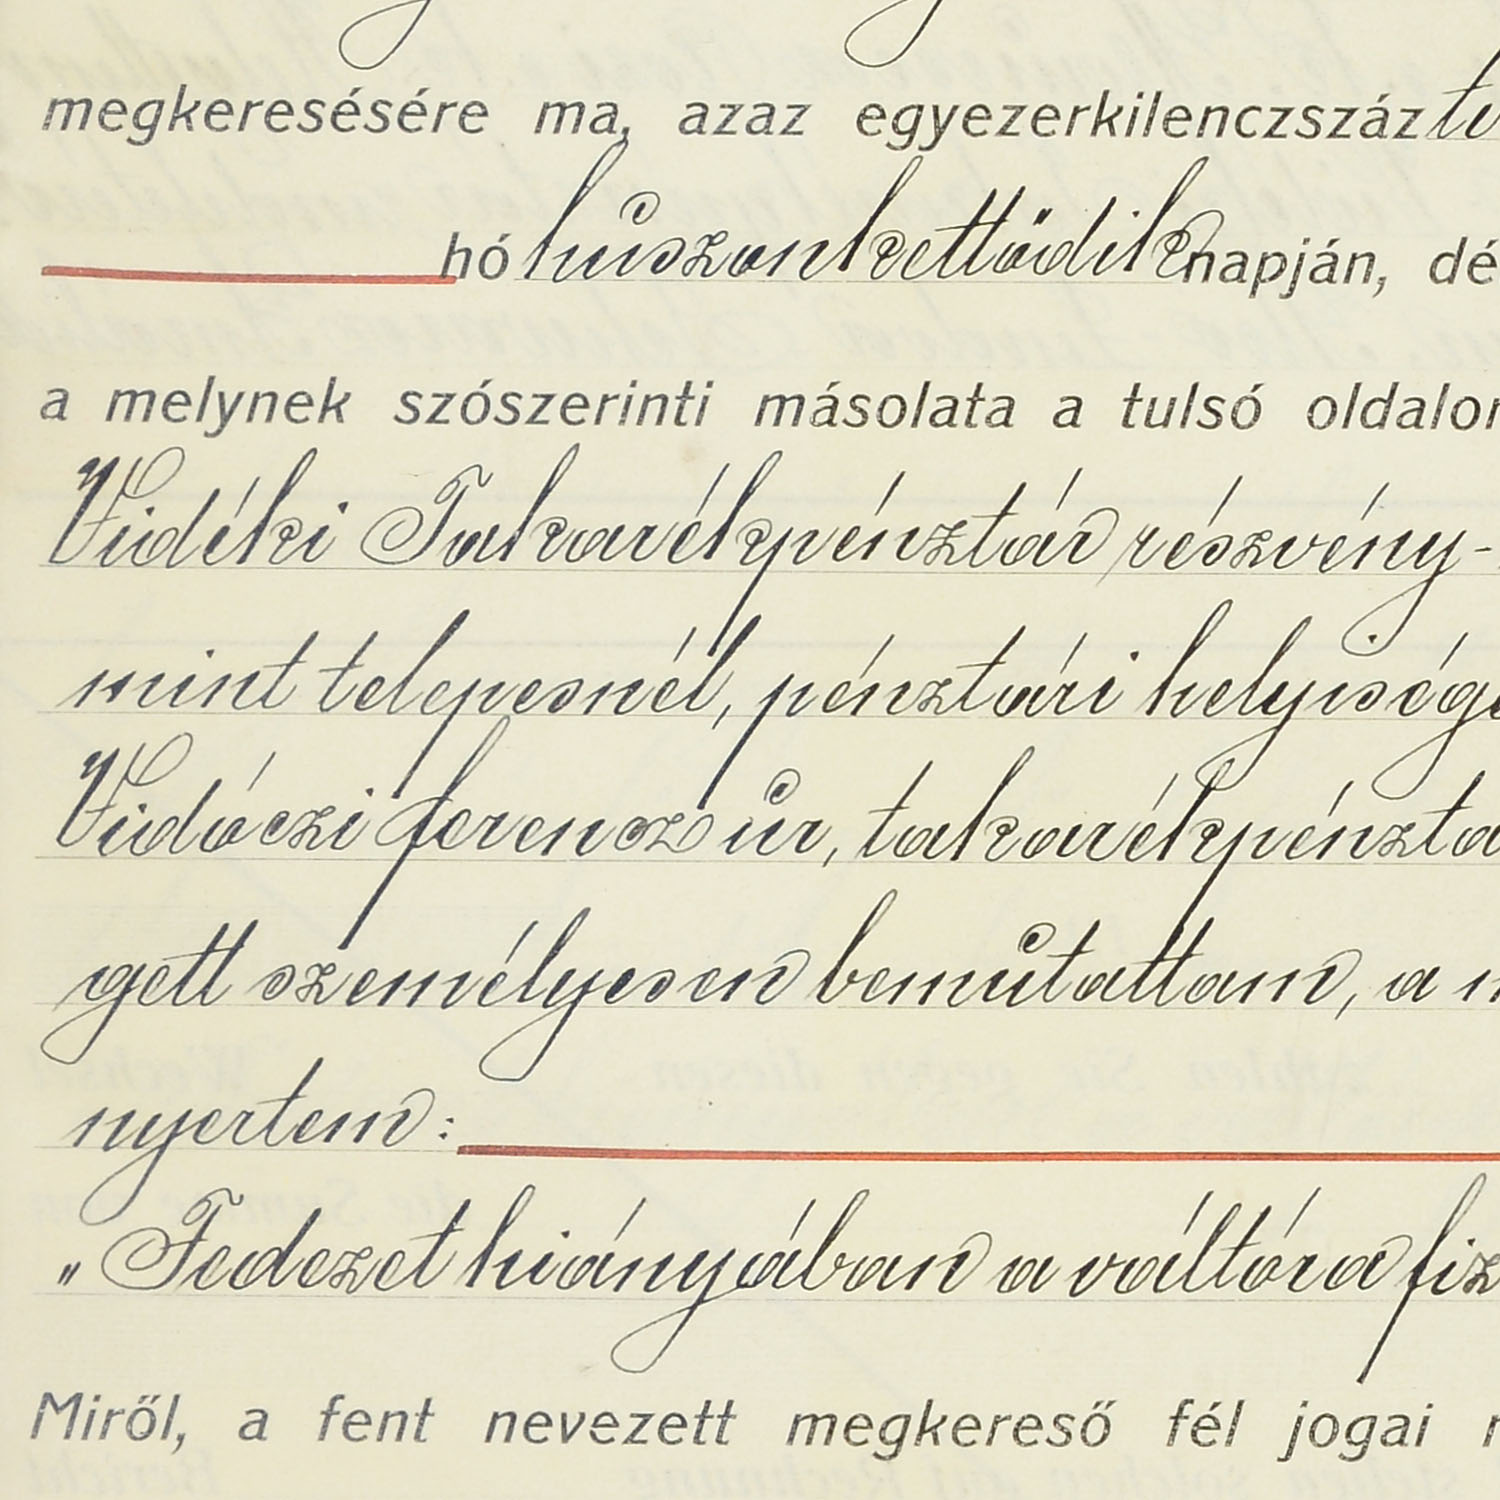 megkeresésére ma, azaz egyezerkilenczszáz
hó húszonkettödik napján, dé
a melynek szószerinti másolata a tulsó oldalon
Vidéki Takarékpénztár részvény-
mint telepesnél, pénztári helyiségé
Vidóczi ferencz úr, takarékpénztá
gett személyesen bemútattam, a
nyertem:
„Fedezet hiányában a váltóra fiz
Miről, a fent nevezett megkereső fél jogai